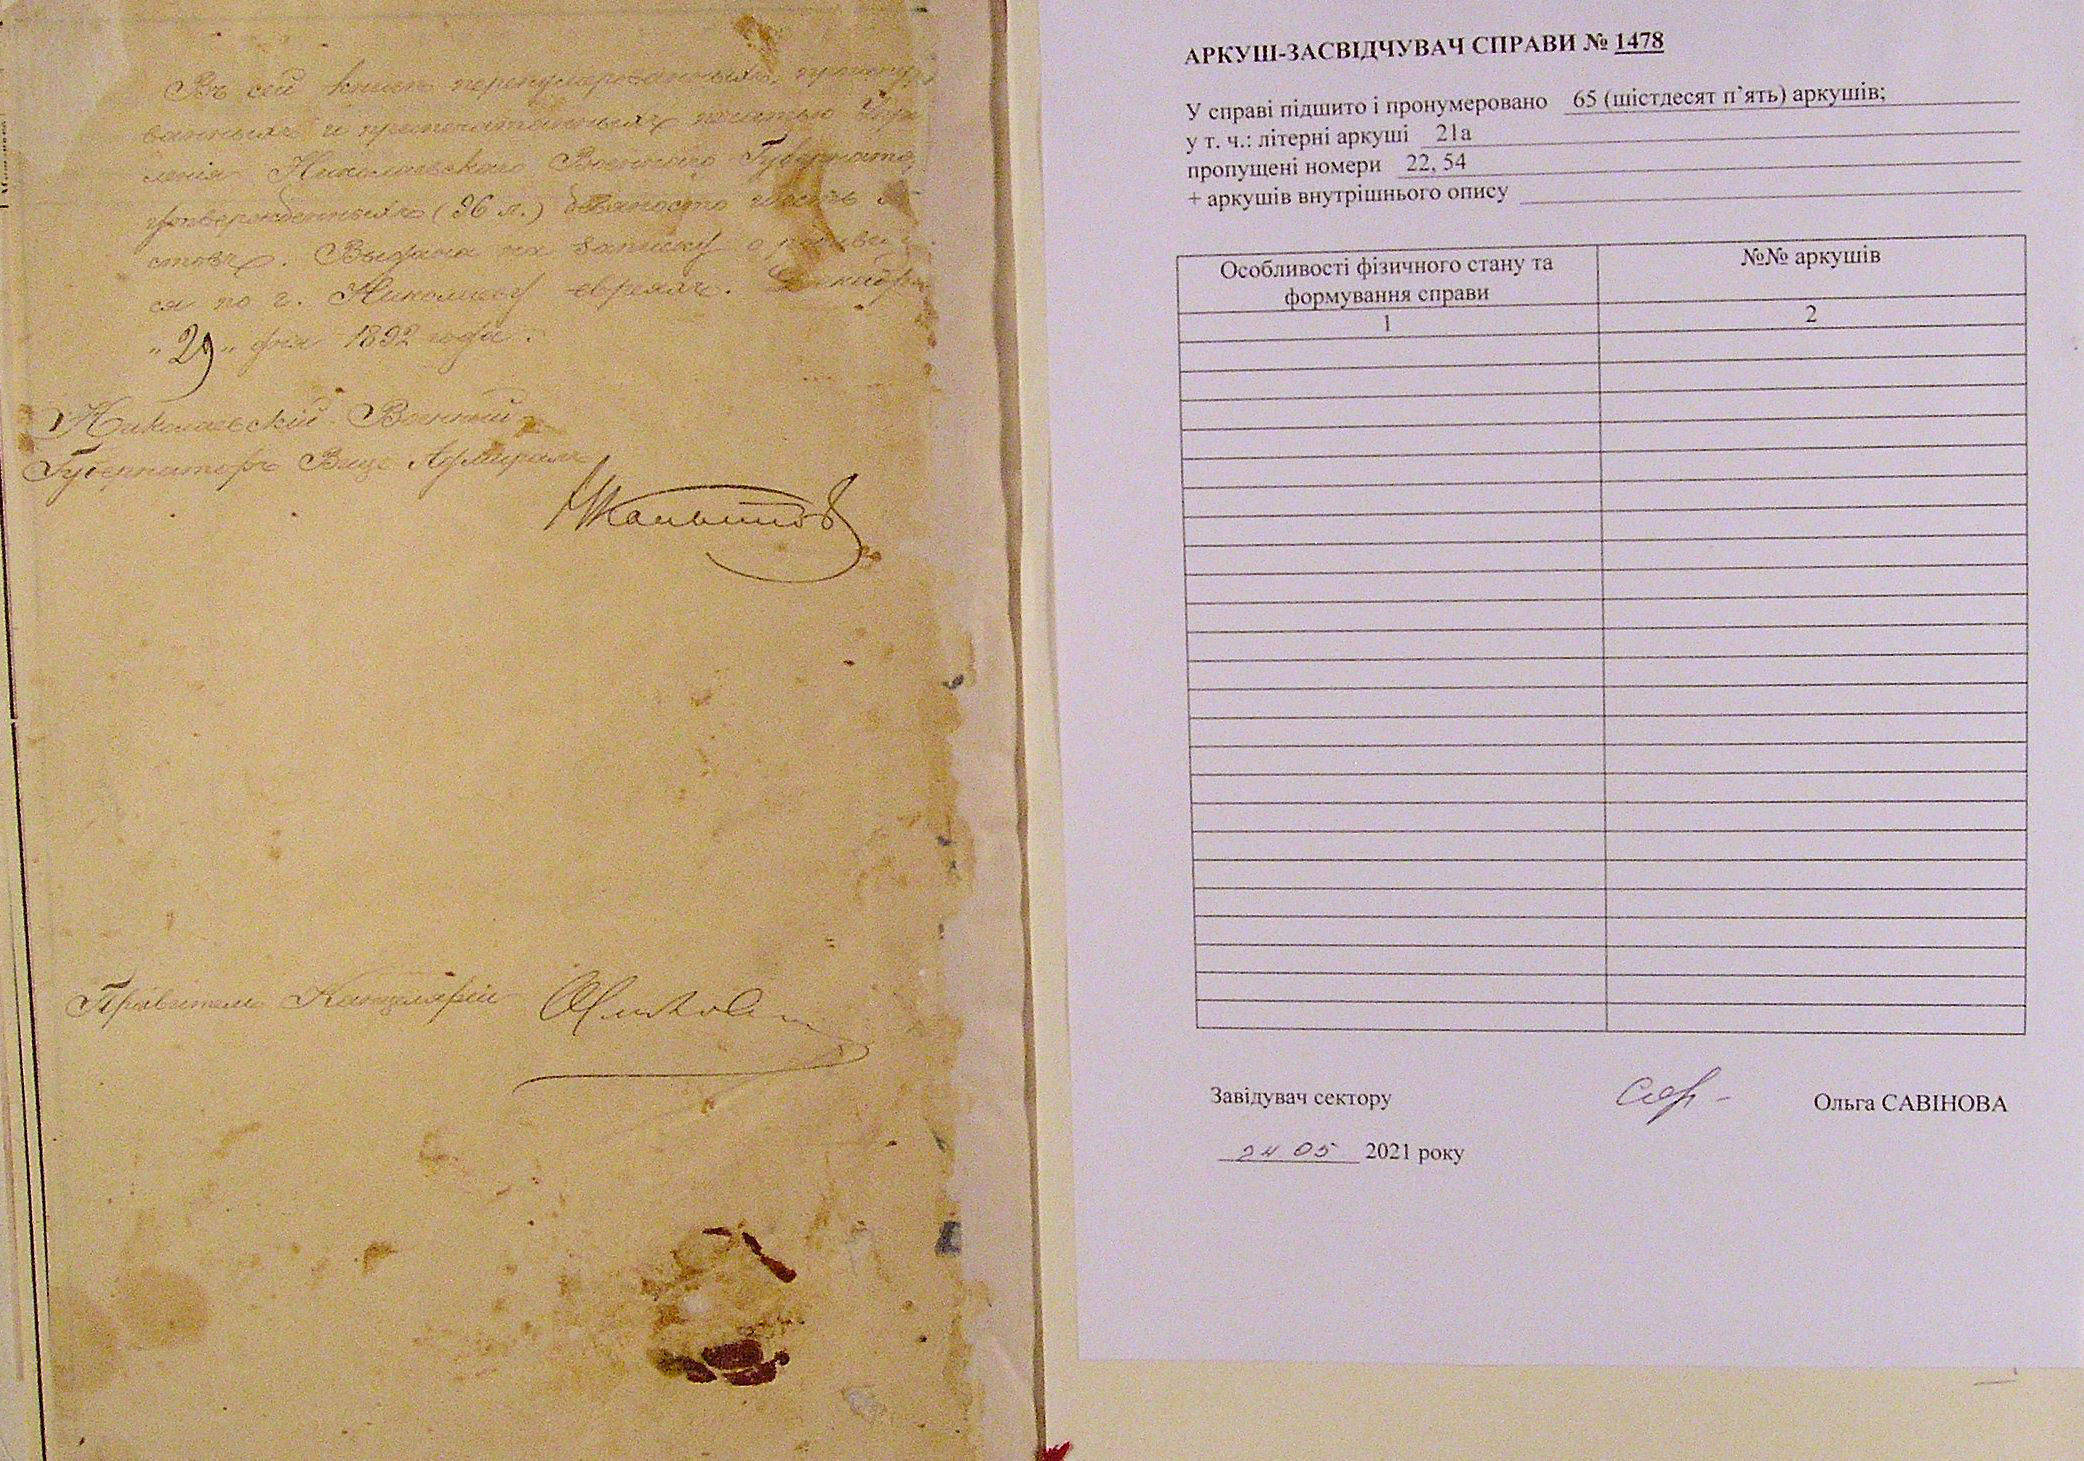 Въ сей книгѣ перенумерованныхъ, прошнуро
ванныхъ и припечатанныхъ печатью Упра
ленія Николаевскаго Военнаго Губернато
(96 л.) девяносто шесть ли
стовъ. Выдана на записку о родивши
ся по г. Николаеву евреяхъ. Декабря
„29„ дня 1892 года.
Николаевскій Военный
Губернаторъ Вице Адмиралъ
Правитель Канцеляріи
АРКУШ-ЗАСВІДЧУВАЧ СПРАВИ № 1478
У справі підшито і пронумеровано 65 (шістдесят п’ять) аркушів;
у т. ч.: літерні аркуші 21а
пропущені номери 22, 54
+ аркушів внутрішнього опису
Особливості фізичного стану та
формування справи
№№ аркушів
1
2
Завідувач сектору
Ольга САВІНОВА
24 05 2021 року